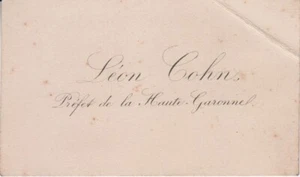 Léon Cohn
Préfet de la Haute-Garonne